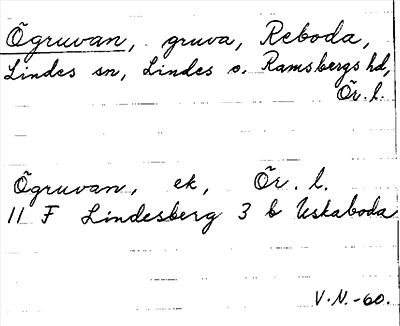 Ögruvan, gruva, Reboda,
Lindes sn, Lindes o. Ramsbergs hd,
Ör. l.
Ögruvan, ek, Ör. l.
11 F Lindesberg 3 b Uskaboda
V.N.-60.